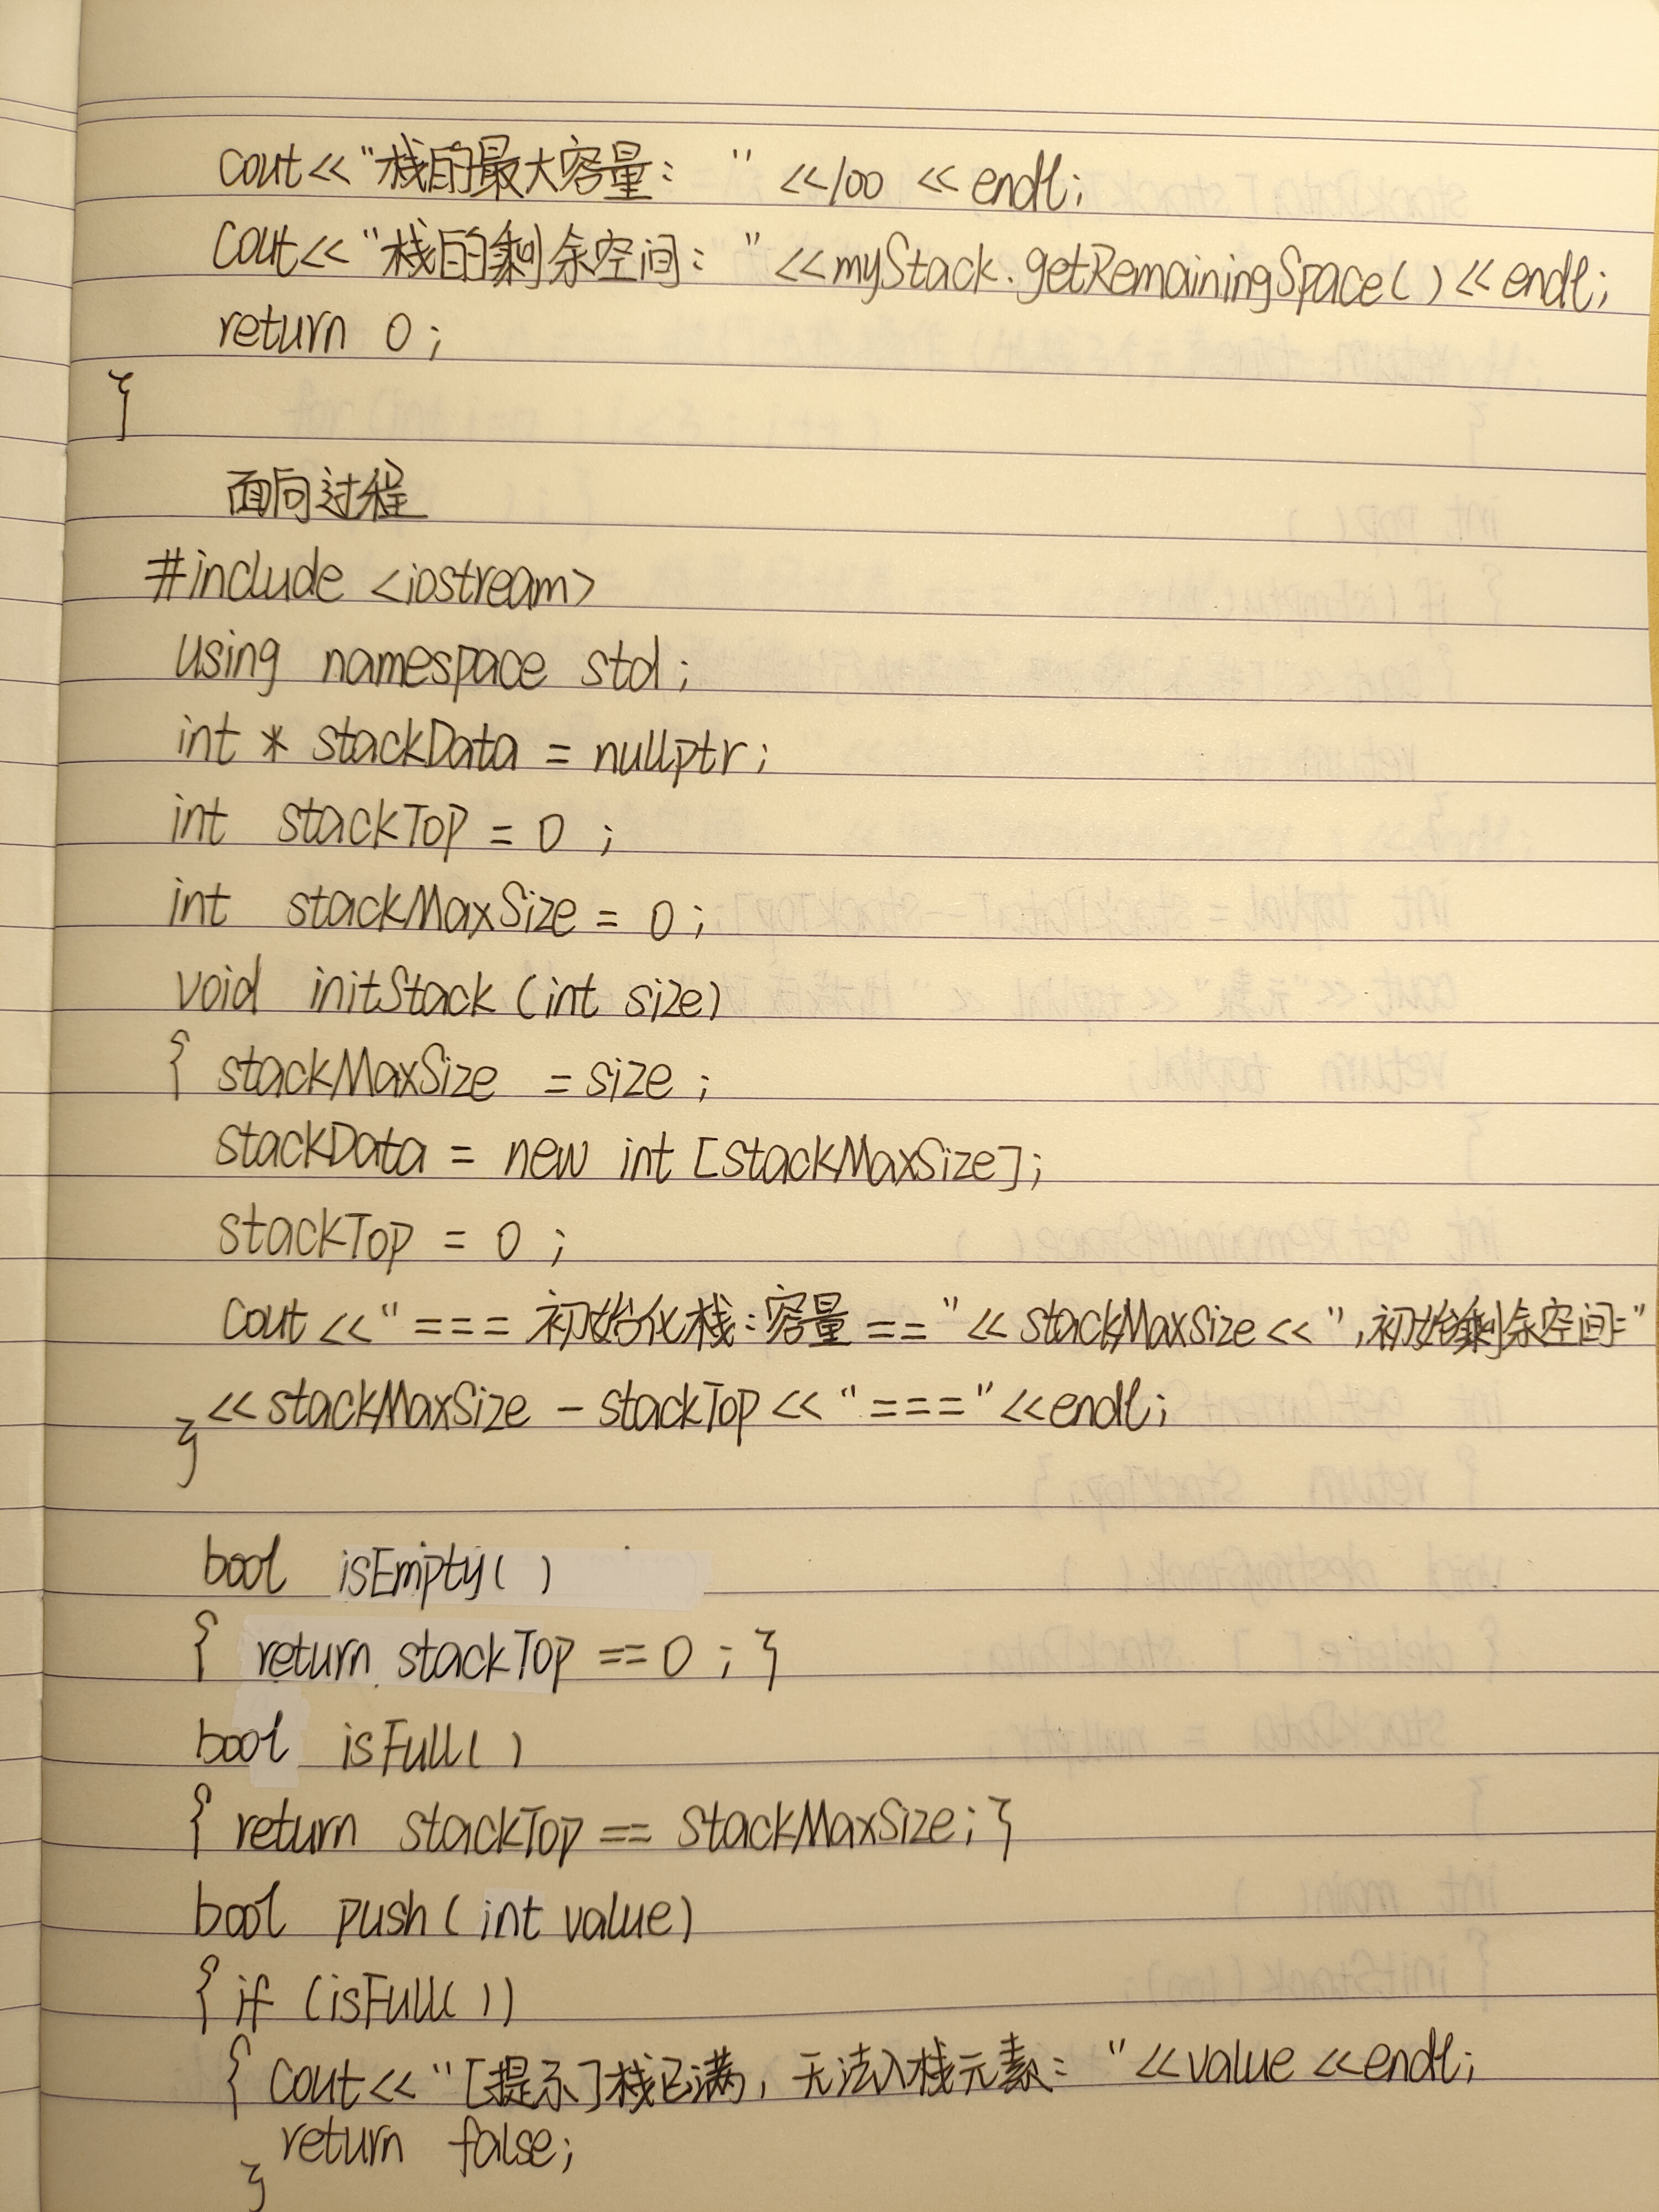 cout<<"栈的最大容量： " <<100 << endl;
cout<<"栈的剩余空间： "<<myStack.getRemainingSpace()<<endl;
return 0;
}
面向过程
#include <iostream>
using namespace std;
int * stackData = nullptr;
int stackTop = 0 ;
int stackMaxSize = 0 ;
void initStack (int size)
{ stackMaxSize = size ;
stackData = new int [stackMaxSize];
stackTop = 0 ;
cout <<"=== 初始化栈：容量=="<< stackMaxSize<<",初始剩余空间="
<<stackMaxSize - stackTop<<"==="<<endl;
}
bool isEmpty( )
{ return stackTop ==0 ; }
bool isFull( )
{ return stackTop == stackMaxSize; }
bool push( int value)
{ if (isFull( ))
{ cout<<"[提示]栈已满，无法入栈元素： "<<value <<endl;
return false;
}